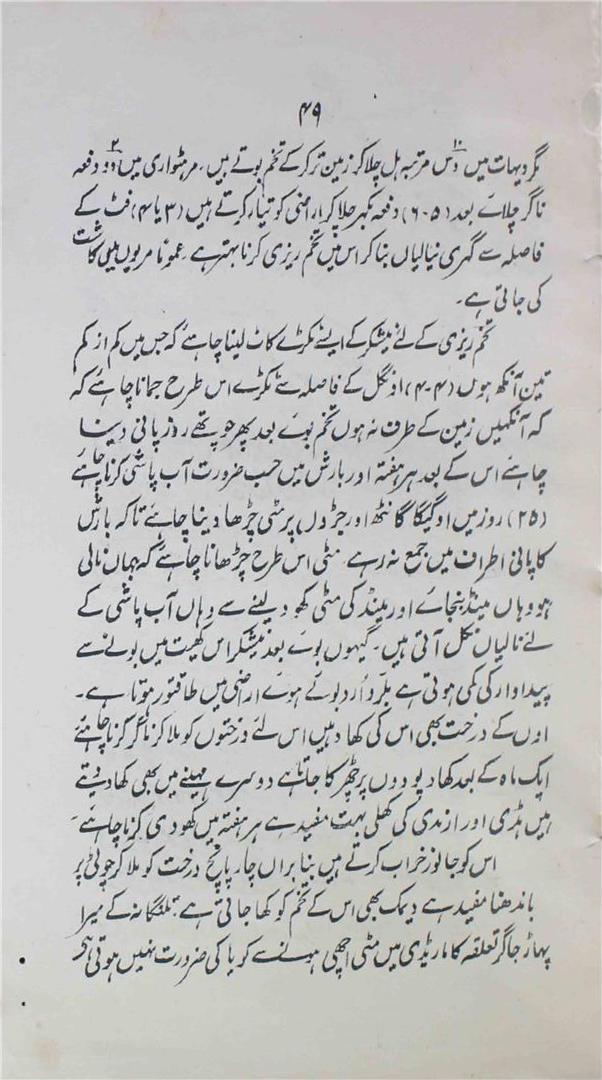 ۴۹
مگر دیہات میں دس ۱۰ مرتبہ ہل چلا کر زمین تر کر کے تخم بوتے ہیں۔ مرہٹواری میں دو ۲ دفعہ
ناگر چلائے بعد (۵-۶) دفعہ بکہر چلا کر اراضی کو تیار کرتے ہیں (۳ یا ۴) فٹ کے
فاصلہ سے گہری نیالیاں بنا کر اس میں تخم ریزی کرنا بہتر ہے۔ عموماً مریوں میں کاشت
کی جاتی ہے۔
تخم ریزی کے لئے نیشکر کے ایسے ٹکڑے کاٹ لینا چاہئے کہ جس میں کم از کم
تین آنکھ ہوں (۴-۴) اونگل کے فاصلہ سے ٹکڑے اس طرح جمانا چاہئے کہ
کہ آنکھیں زمین کے طرف نہ ہوں تخم بوئے بعد پھر چوتھے روز پانی دینا
چاہئے اس کے بعد ہر ہفتہ اور بارش میں حسب ضرورت آب پاشی کرنا چاہئے
(۲۵) روز میں اوگیگا گانٹھ اور جڑوں پر مٹی چڑھا دینا چاہئے تاکہ بارش
کا پانی اطراف میں جمع نہ رہے۔ مٹی اس طرح چڑھانا چاہئے کہ جہاں نالی
ہو وہاں مینڈ بنجائے اور مینڈ کی مٹی کھود لینے سے وہاں آب پاشی کے
لئے نالیاں نکل آتی ہیں۔ گیہوں بوئے بعد نیشکر اس کھیت میں بونے سے
پیداوار کی کمی ہوتی ہے بلّر و اُرد بوئے ہوئے اراضی میں طاقتور ہوتا ہے۔
اون کے درخت بھی اس کی کھاد ہیں اس لئے درختوں کو ملا کر ناگر کرنا چاہئے
ایک ماہ کے بعد کھاد پودوں پر چھڑکا جاتا ہے دوسرے مہینے میں بھی کھاد دیتے
ہیں ہڈی اور ازندی کی کھلی بہت مفید ہے ہر ہفتہ میں کھودی کرنا چاہئے۔
اس کو جانور خراب کرتے ہیں بنا براں چار پانچ درخت کو ملا کر چوٹی پر
باندھنا مفید ہے دیمک بھی اس کے تخم کو کھا جاتی ہے۔ تلنگانہ کے میرا
پہاڑ جاگر تعلقہ کاماریڈی میں مٹی اچھی ہونے سے کر با کی ضرورت نہیں ہوتی